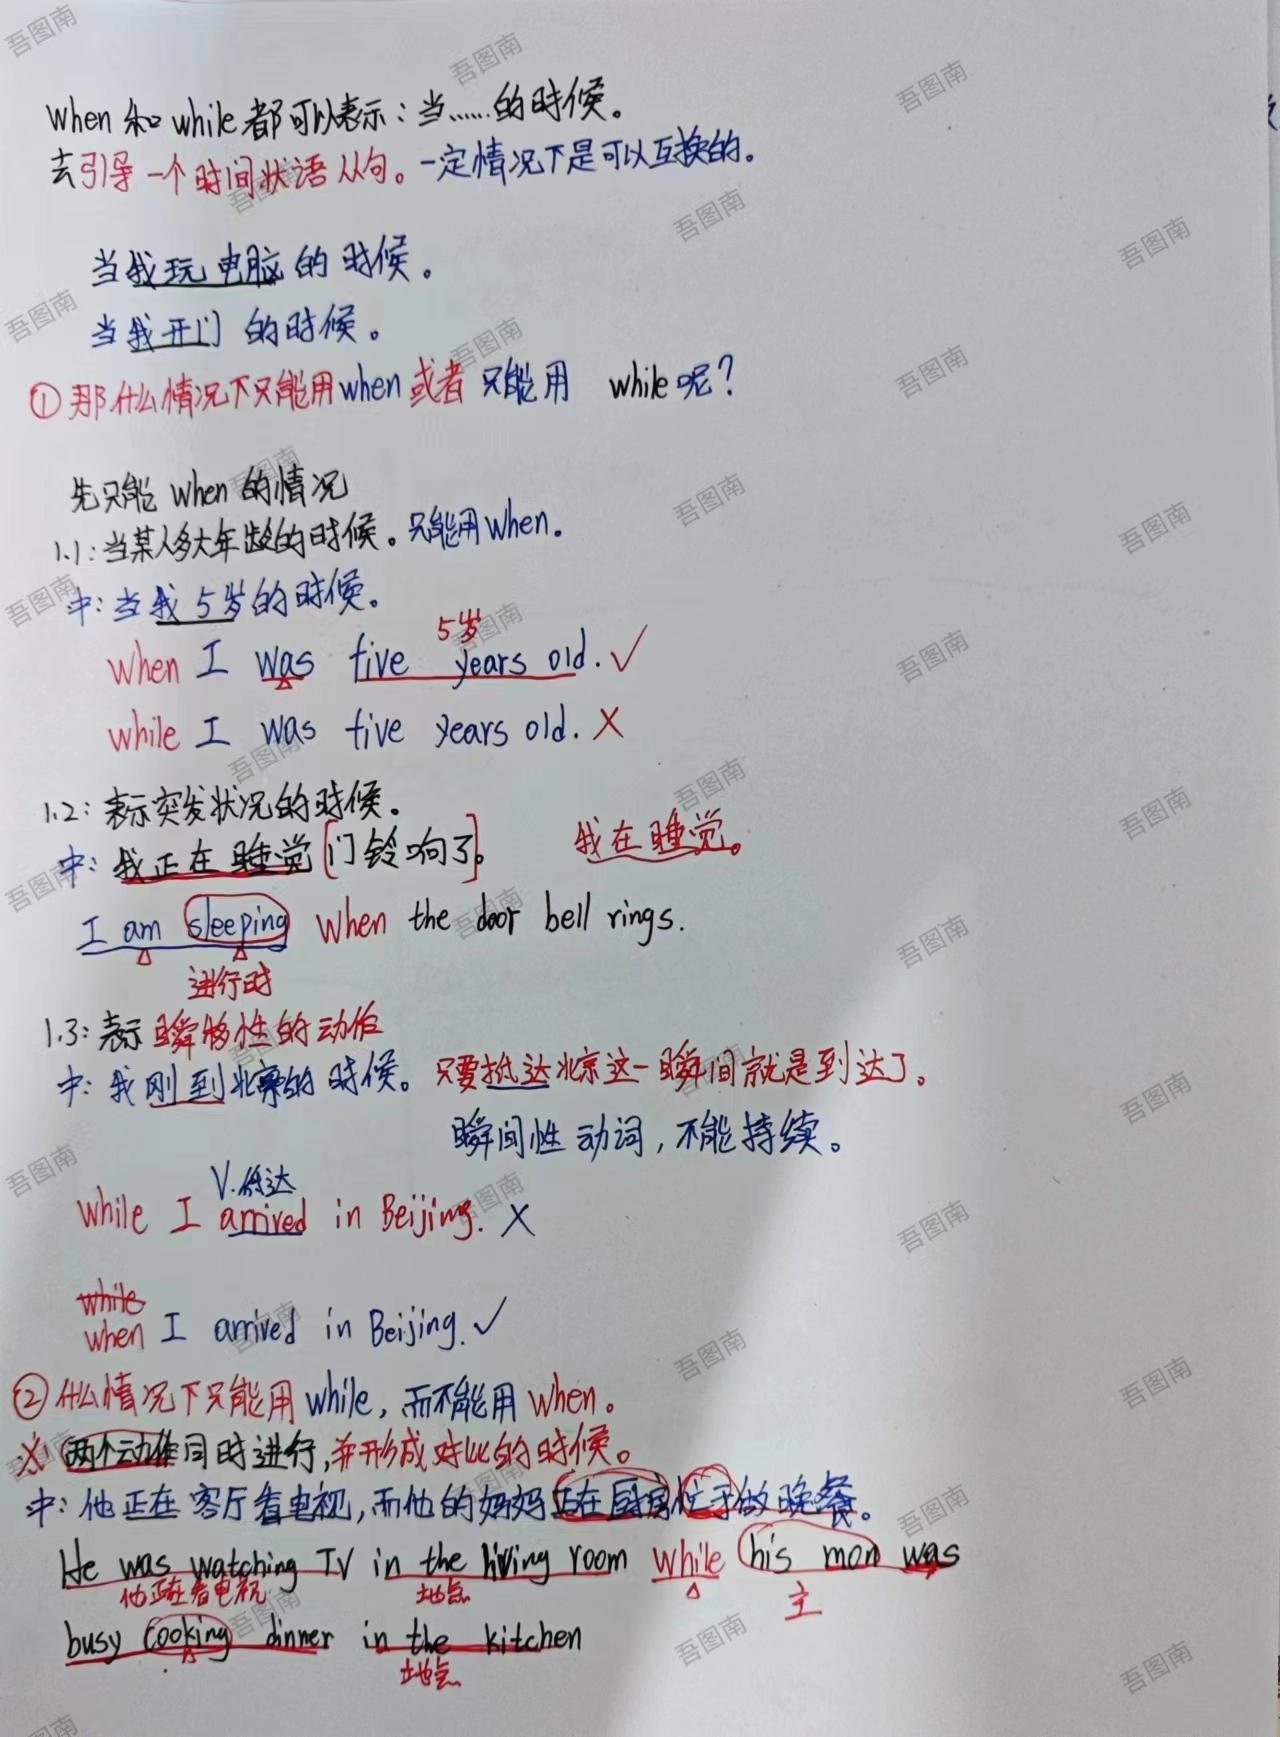 when 和 while 都可以表示：当……的时候。
去引导一个时间状语从句。一定情况下是可以互换的。
当我玩电脑的时候。
当我开门的时候。
① 那什么情况下只能用when或者只能用 while呢？
先只能 when 的情况
1.1：当某人多大年龄的时候。只能用when。
中：当我5岁的时候。
5岁
when I was five years old. ✓
while I was five years old. ×
1.2：表示突发状况的时候。
中：我正在睡觉[门铃响了]。 我在睡觉。
I am sleeping when the door bell rings.
进行时
1.3：表示瞬间性的动作
中：我刚到北京的时候。只要抵达北京这一瞬间就是到达了。
瞬间性动词，不能持续。
V.抵达
while I arrived in Beijing. ×
while
when I arrived in Beijing. ✓
② 什么情况下只能用while，而不能用when。
※ 两个动作同时进行，并形成对比的时候。
中：他正在客厅看电视，而他的妈妈正在厨房忙于做晚餐。
He was watching TV in the living room while his mon was
他正在看电视 地点 主
busy cooking dinner in the kitchen
地点
吾图南